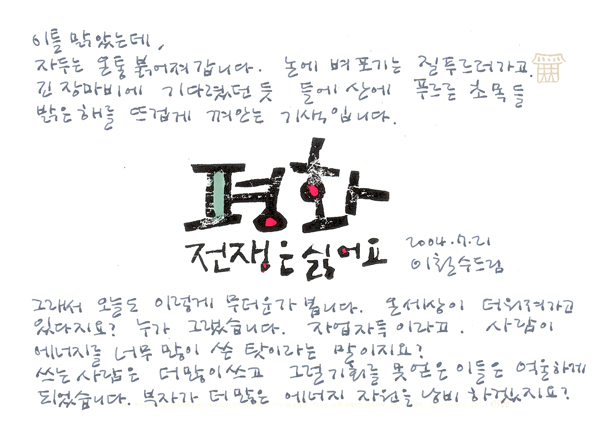 이틀 맑았는데,
자두는 온통 붉어져 갑니다. 논에 벼 포기는 짙푸르러가고.
긴 장마비에 기다렸던 듯 들에 산에 푸르른 초목들
밝은 해를 뜨겁게 껴안는 기색입니다.
평화
전쟁은 싫어요
2004.7.21
이철수드림
그래서 오늘도 이렇게 무더운가 봅니다. 온세상이 더워져가고
있다지요? 누가 그랬습니다. 자업자득이라고. 사람이
에너지를 너무 많이 쓴 탓이라는 말이지요?
쓰는 사람은 더 많이 쓰고 그럴 기회를 못 얻은 이들은 억울하게
되었습니다. 부자가 더 많은 에너지 자원을 낭비 하겠지요?